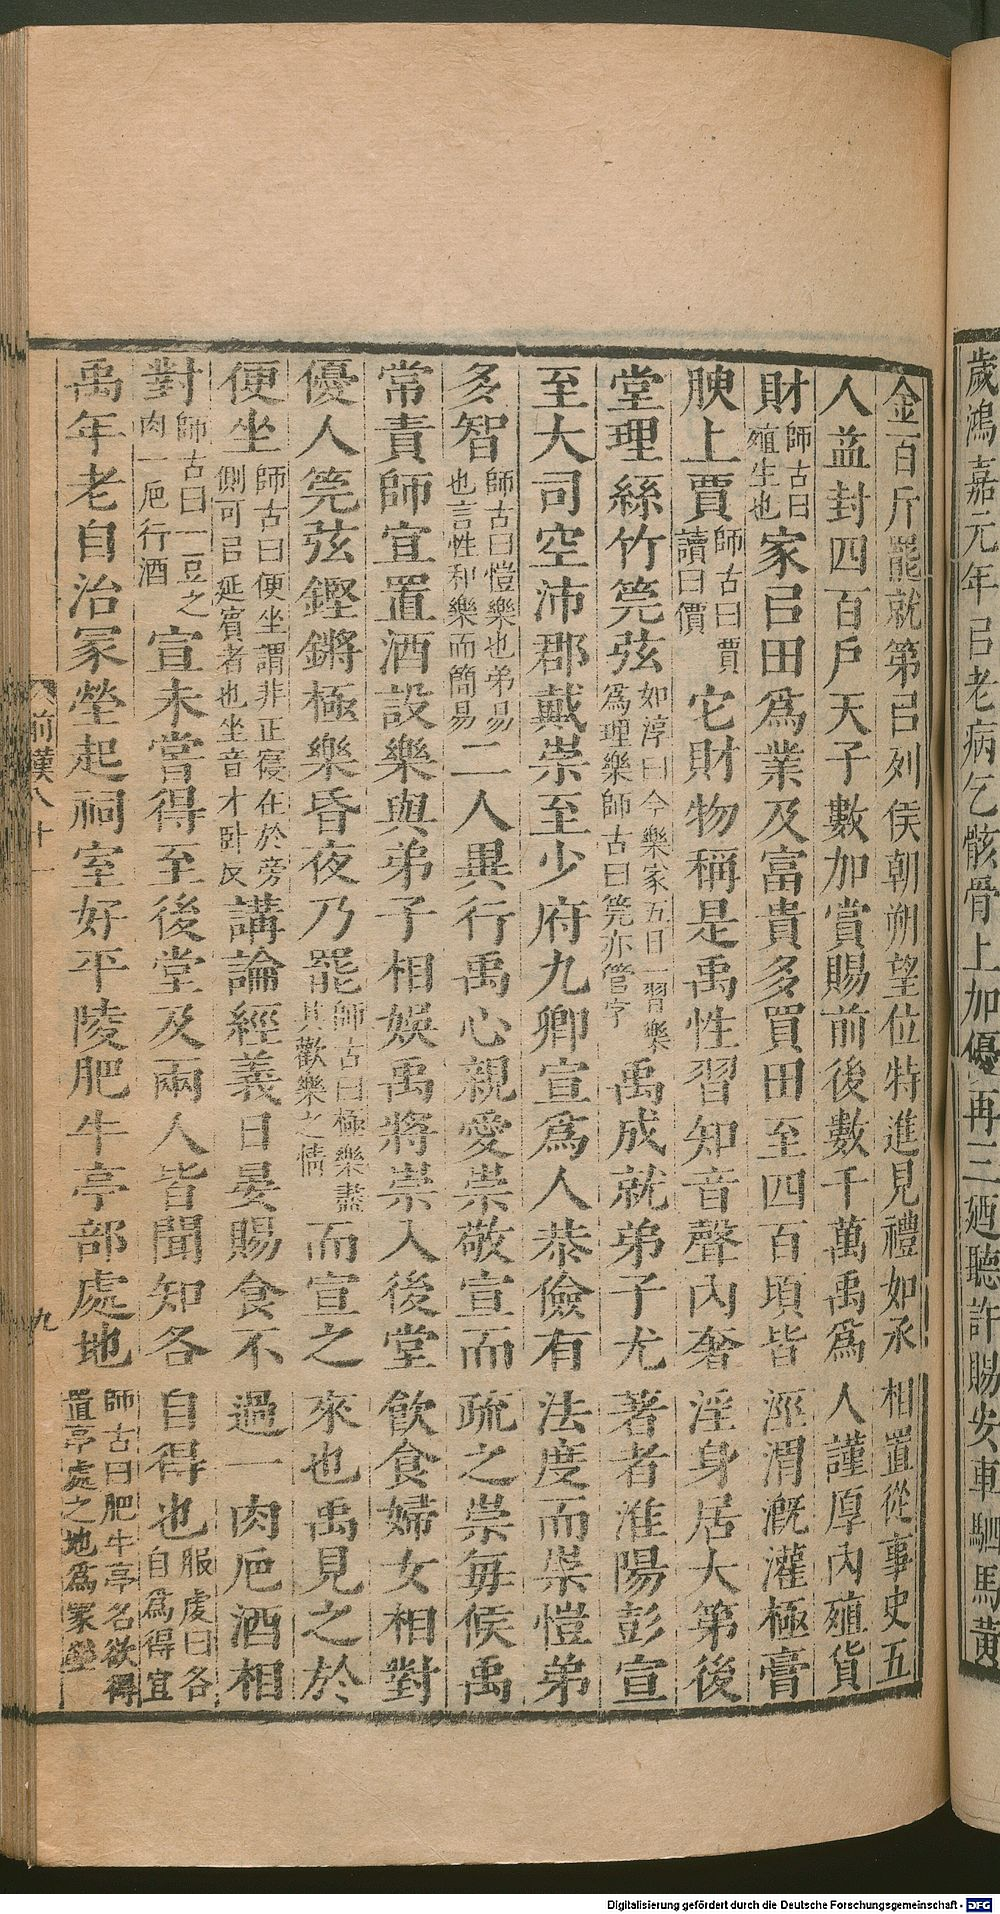 歲鴻嘉元年㠯老病乞骸骨上加優再三廼聽許賜安車駟馬黃
金百斤罷就第㠯列侯朝朔望位特進見禮如丞相置從事史五
人益封四百戶天子數加賞賜前後數千萬禹爲人謹厚內殖貨
財師古曰殖生也家㠯田爲業及富貴多買田至四百頃皆涇渭漑灌極膏
腴上賈師古曰賈讀曰價它財物稱是禹性習知音聲內奢淫身居大第後
堂理絲竹筦弦如淳曰今樂家五日一習樂爲理樂師古曰筦亦管字禹成就弟子尤著者淮陽彭宣
至大司空沛郡戴崇至少府九卿宣爲人恭儉有法度而崇愷弟
多智師古曰愷樂也弟易也言性和樂而簡易二人異行禹心親愛崇敬宣而疏之崇每候禹
常責師宜置酒設樂與弟子相娛禹將崇入後堂飮食婦女相對
優人筦弦鏗鏘極樂昏夜乃罷師古曰極樂盡其歡樂之情而宣之來也禹見之於
便坐師古曰便坐謂非正寢在於旁側可㠯延賓者也坐音才卧反講論經義日晏賜食不過一肉卮酒相
對師古曰一豆之肉一卮行酒宣未嘗得至後堂及兩人皆聞知各自得也服虔曰各自爲得宜
禹年老自治冢塋起祠室好平陵肥牛亭部處地師古曰肥牛亭名欲得置亭處之地爲冢塋
前漢八十一
九
Digitalisierung gefördert durch die Deutsche Forschungsgemeinschaft - DFG